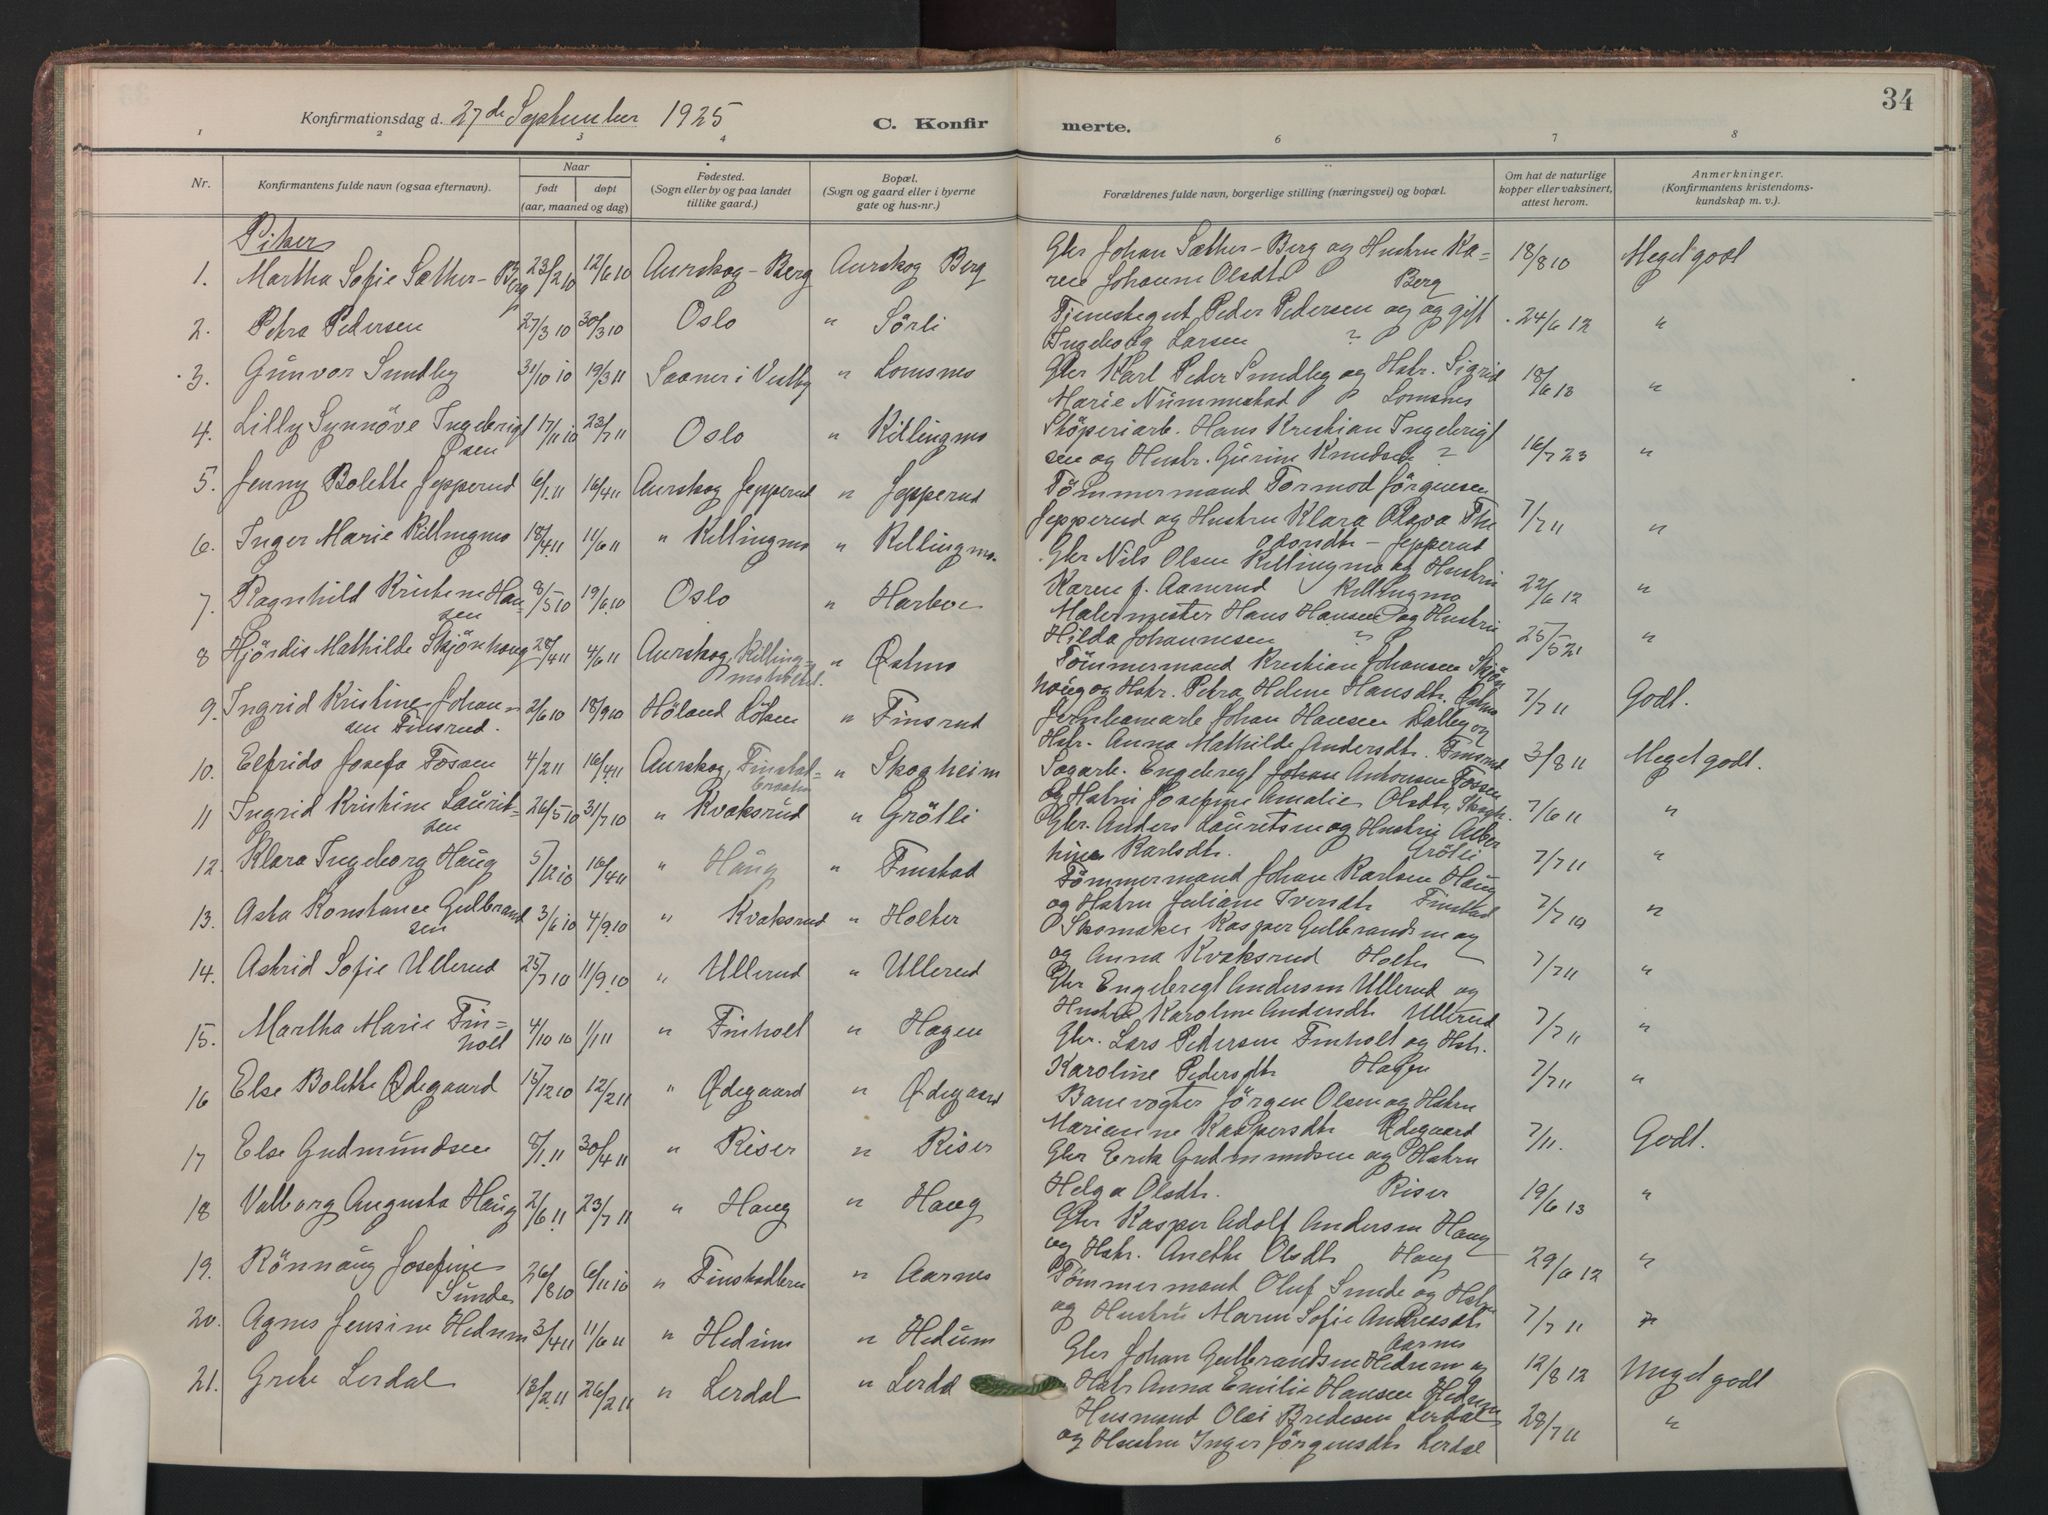 34
Konfirmationsdag d. 27de September 1925
C. Konfirmerte.
1 2 3 4 6 7 8
Nr.
Konfirmantens fulde navn (ogsaa efternavn).
Naar
født
døpt
(aar, maaned og dag)
Fødested.
(Sogn eller by og paa landet
tillike gaard.)
Bopæl.
(Sogn og gaard eller i byerne
gate og hus-nr.)
Forældrenes fulde navn, borgerlige stilling (næringsvei) og bopæl.
Om hat de naturlige
kopper eller vaksinert,
attest herom.
Anmerkninger.
(Konfirmantens kristendoms-
kundskap m. v.).
Piker
1. Martha Sofie Sæther-Berg 23/2 10 12/6 10 Aurskog-Berg Aurskog Berg
Gbr Johan Sæther-Berg og Hustru Ka-
ren Johanne Olsdt Berg 18/8 10 Meget godt
2. Petra Pedersen 27/3 10 30/3 10 Oslo " Sörli
Tjenestegut Peder Pedersen og ug gift
Ingeborg Larsen ? 24/6 12 "
3. Gunvor Sundby 31/10 10 19/3 11 Saaner i Vestby " Lomsnes
Gbr Karl Peder Sundby og Hstr. Sigrid
Marie Nummestad Lomsnes 18/6 13 "
4. Lilly Synnöve Ingebrigt
sen 17/11 10 23/7 11 Oslo " Killingmo
Stöperiarb. Hans Kristian Ingebrigt
sen og Hustr. Gurine Knudsen ? 16/7 23 "
5. Jenny Bolette Jepperud 6/1 11 16/4 11 Aurskog Jepperud " Jepperud
Tömmermand Tormod Jörgensen
Jepperud og Hustru Klara Olava The
odorsdt - Jepperud 7/7 11 "
6. Inger Marie Killingmo 18/4 11 11/6 11 " Killingmo " Killingmo
Gbr Nils Olsen Killingmo og Hustru
Karen J. Aanerud Killingmo 22/6 12 "
7. Ragnhild Kristine Han-
sen 8/5 10 19/6 10 Oslo " Harboe
Malermester Hans Hansen og Hustru
Hilda Johannesen ? 25/5 21 "
8 Hjördis Mathilde Skjönhaug 28/4 11 4/6 11 Aurskog, Killing-
moholtet. " Østmo
Tömmermand Kristian Johansen Skjön
haug og Hstr. Petra Helene Hansdt. Østmo 7/7 11 Godt.
9. Ingrid Kristine Johan-
sen Finsrud. 2/6 10 18/9 10 Höland Löken " Finsrud
Jernbanearb Johan Hansen Dalby og
Hstr. Anna Mathilde Andersdt. Finsrud 3/8 11 Meget godt.
10. Elfrida Josefa Fossen 4/2 11 16/4 11 Aurskog, Finstad-
" Skogheim
Sagarb. Engebregt Johan Anhonsen Fossen
og Hstru Josefine Amalie Olsdt, Skogh. 7/6 11 "
11 Ingrid Kristine Laurit-
sen 26/5 10 31/7 10 " Kvaksrud " Grötli
Gbr. Anders Lauritsen og Hustru Alber
tine Karlsdt. Grötli 7/7 11 "
12. Klara Ingeborg Haug 5/12 10 16/4 11 " Haug " Finstad
Tömmermand Johan Karlsen Haug
og Hstru Juliane Iversdt Finstad 7/7 10 "
13. Asta Konstance Gulbrand
sen 3/6 10 4/9 10 " Kvaksrud " Holter
Skomaker Kasper Gulbrandsen og
og Anna Kvaksrud Holter 7/7 11 "
14. Astrid Sofie Ullerud 25/7 10 11/9 10 " Ullerud " Ullerud
Gbr Engebregt Andersen Ullerud og
Hustru Karoline Andersdt Ullerud 7/7 11 "
15. Martha Marie Fin-
holt 4/10 10 1/1 11 " Finholt " Hagen
Gbr. Lars Pedersen Finholt og Hstr.
Karoline Pedersdt Hagen 7/7 11 "
16 Else Bolette Ødegaard 15/12 10 12/2 11 " Ødegaard " Ødegaard
Banevogter Jörgen Olsen og Hstru
Marianne Kaspersdt Ødegaard 7/11. Godt.
17 Else Gudmundsen 8/1 11 30/4 11 " Riser " Riser
Gbr Erik Gudmundsen og Hstru
Helga Olsdt. Riser 19/6 13 "
18 Valborg Augusta Haug 2/6 11 23/7 11 " Haug " Haug
Gbr Kasper Adolf Andersen Haug
og Hstr. Anette Olsdt Haug 29/6 12 "
19. Rönnaug Josefine
Sunde 26/8 10 6/11 10 " Finstadbru " Aarnes
Tömmermand Oluf Sunde og Hstru
og Hustru Maren Sofie Andresdt
Aarnes 7/7 11 "
20. Agnes Jensine Hedum 3/4 11 11/6 11 " Hedum " Hedum
Gbr Johan Gulbrandsen Hedum og
Hstr Anna Emilie Hansen Hedum 12/8 12 Meget godt
21. Grete Lerdal 13/2 11 26/2 11 " Lerdal " Lerdal
Husmand Olai Bredesen Lerdal
og Hustru Inger Jörgensdt Lerdal 28/7 11 "